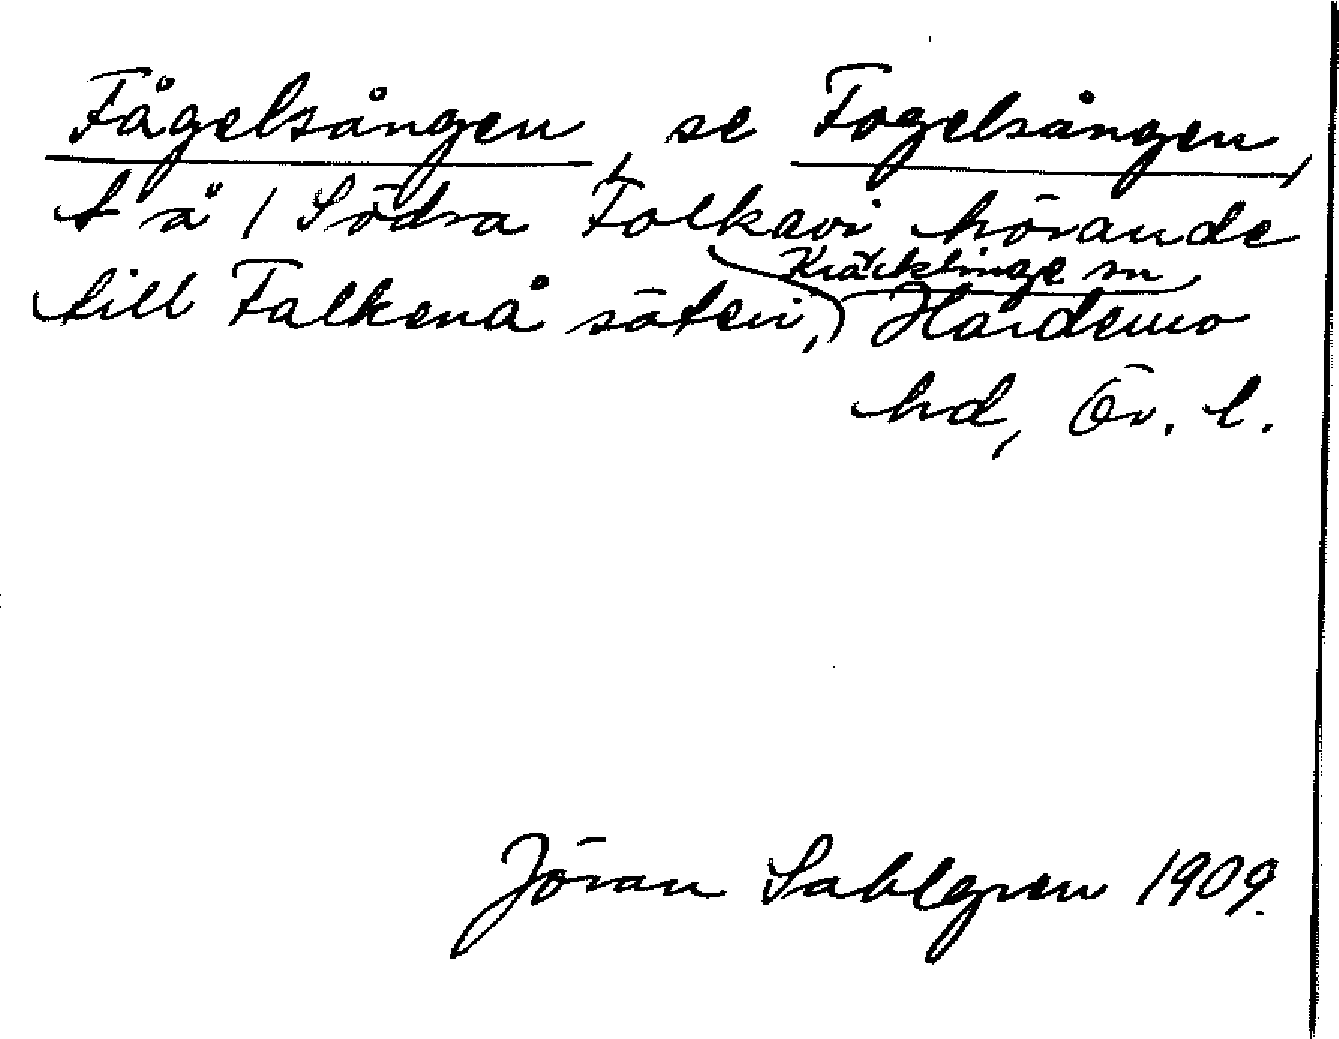 Fågelsången, se Fogelsången,
t ä / Södra Folkavi hörande
till Falkenå säteri, Kräcklinge sn
Hardemo
hd, Ör. l.
Jöran Sahlgren 1909.